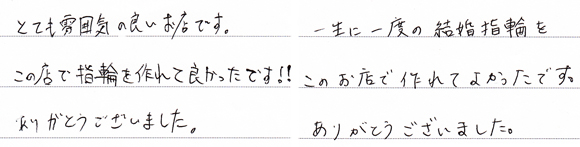 とても雰囲気の良いお店です。
この店で指輪を作れて良かったです!!
ありがとうございました。
一生に一度の結婚指輪を
このお店で作れてよかったです。
ありがとうございました。